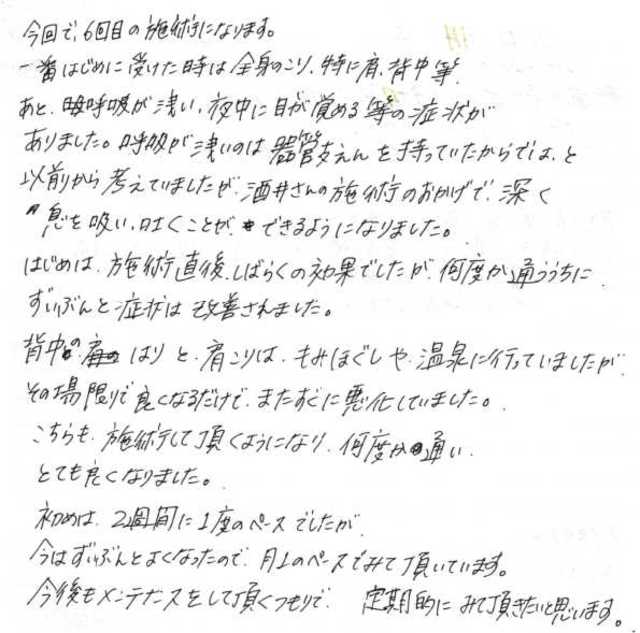 今回で、6回目の施術になります。
一番はじめに受けた時は全身のこり、特に肩、背中等、
あと、呼吸が浅い、夜中に目が覚める等の症状が
ありました。呼吸が浅いのは器管支えんを持っていたからでは、と
以前から考えていましたが、酒井さんの施術のおかげで、深く
息を吸い、吐くことができるようになりました。
はじめは、施術直後、しばらくの効果でしたが、何度か通ううちに
ずいぶんと症状は改善されました。
背中のはりと、肩こりは、もみほぐしや、温泉に行っていましたが、
その場限りで良くなるだけで、またすぐに悪化していました。
こちらも、施術して頂くようになり、何度か通い、
とても良くなりました。
初めは、2週間に1度のペースでしたが、
今はずいぶんとよくなったので、月1のペースでみて頂いています。
今後もメンテナスをして頂くつもりで、定期的にみて頂きたいと思います。